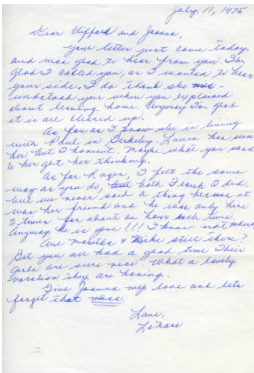 July 11, 1975
Dear Clifford and Joanna,
Your letter just came today
and was glad to hear from you. I'm
glad I called you, as I wanted to hear
your side. I do think she mis-
understood you when you explained
about leaving home. Anyway I'm glad
it is all cleared up.
As far as I know she is living
with Paul in Berkeley. Laura has seen
her but I haven't. Maybe what you said
to her got her thinking.
As for Roger, I felt the same
way as you do, both I
but we never said a thing because it
was her friend and he was only here
3 times for about an hour each time
Anyway he is gone!!! I know not where.
Are & Mike still there?
Bet you all had a good time Their
girls are sure nice. What a lovely
vacation they are having.
Give Joanna my love and lets
forget that mess.
Love,